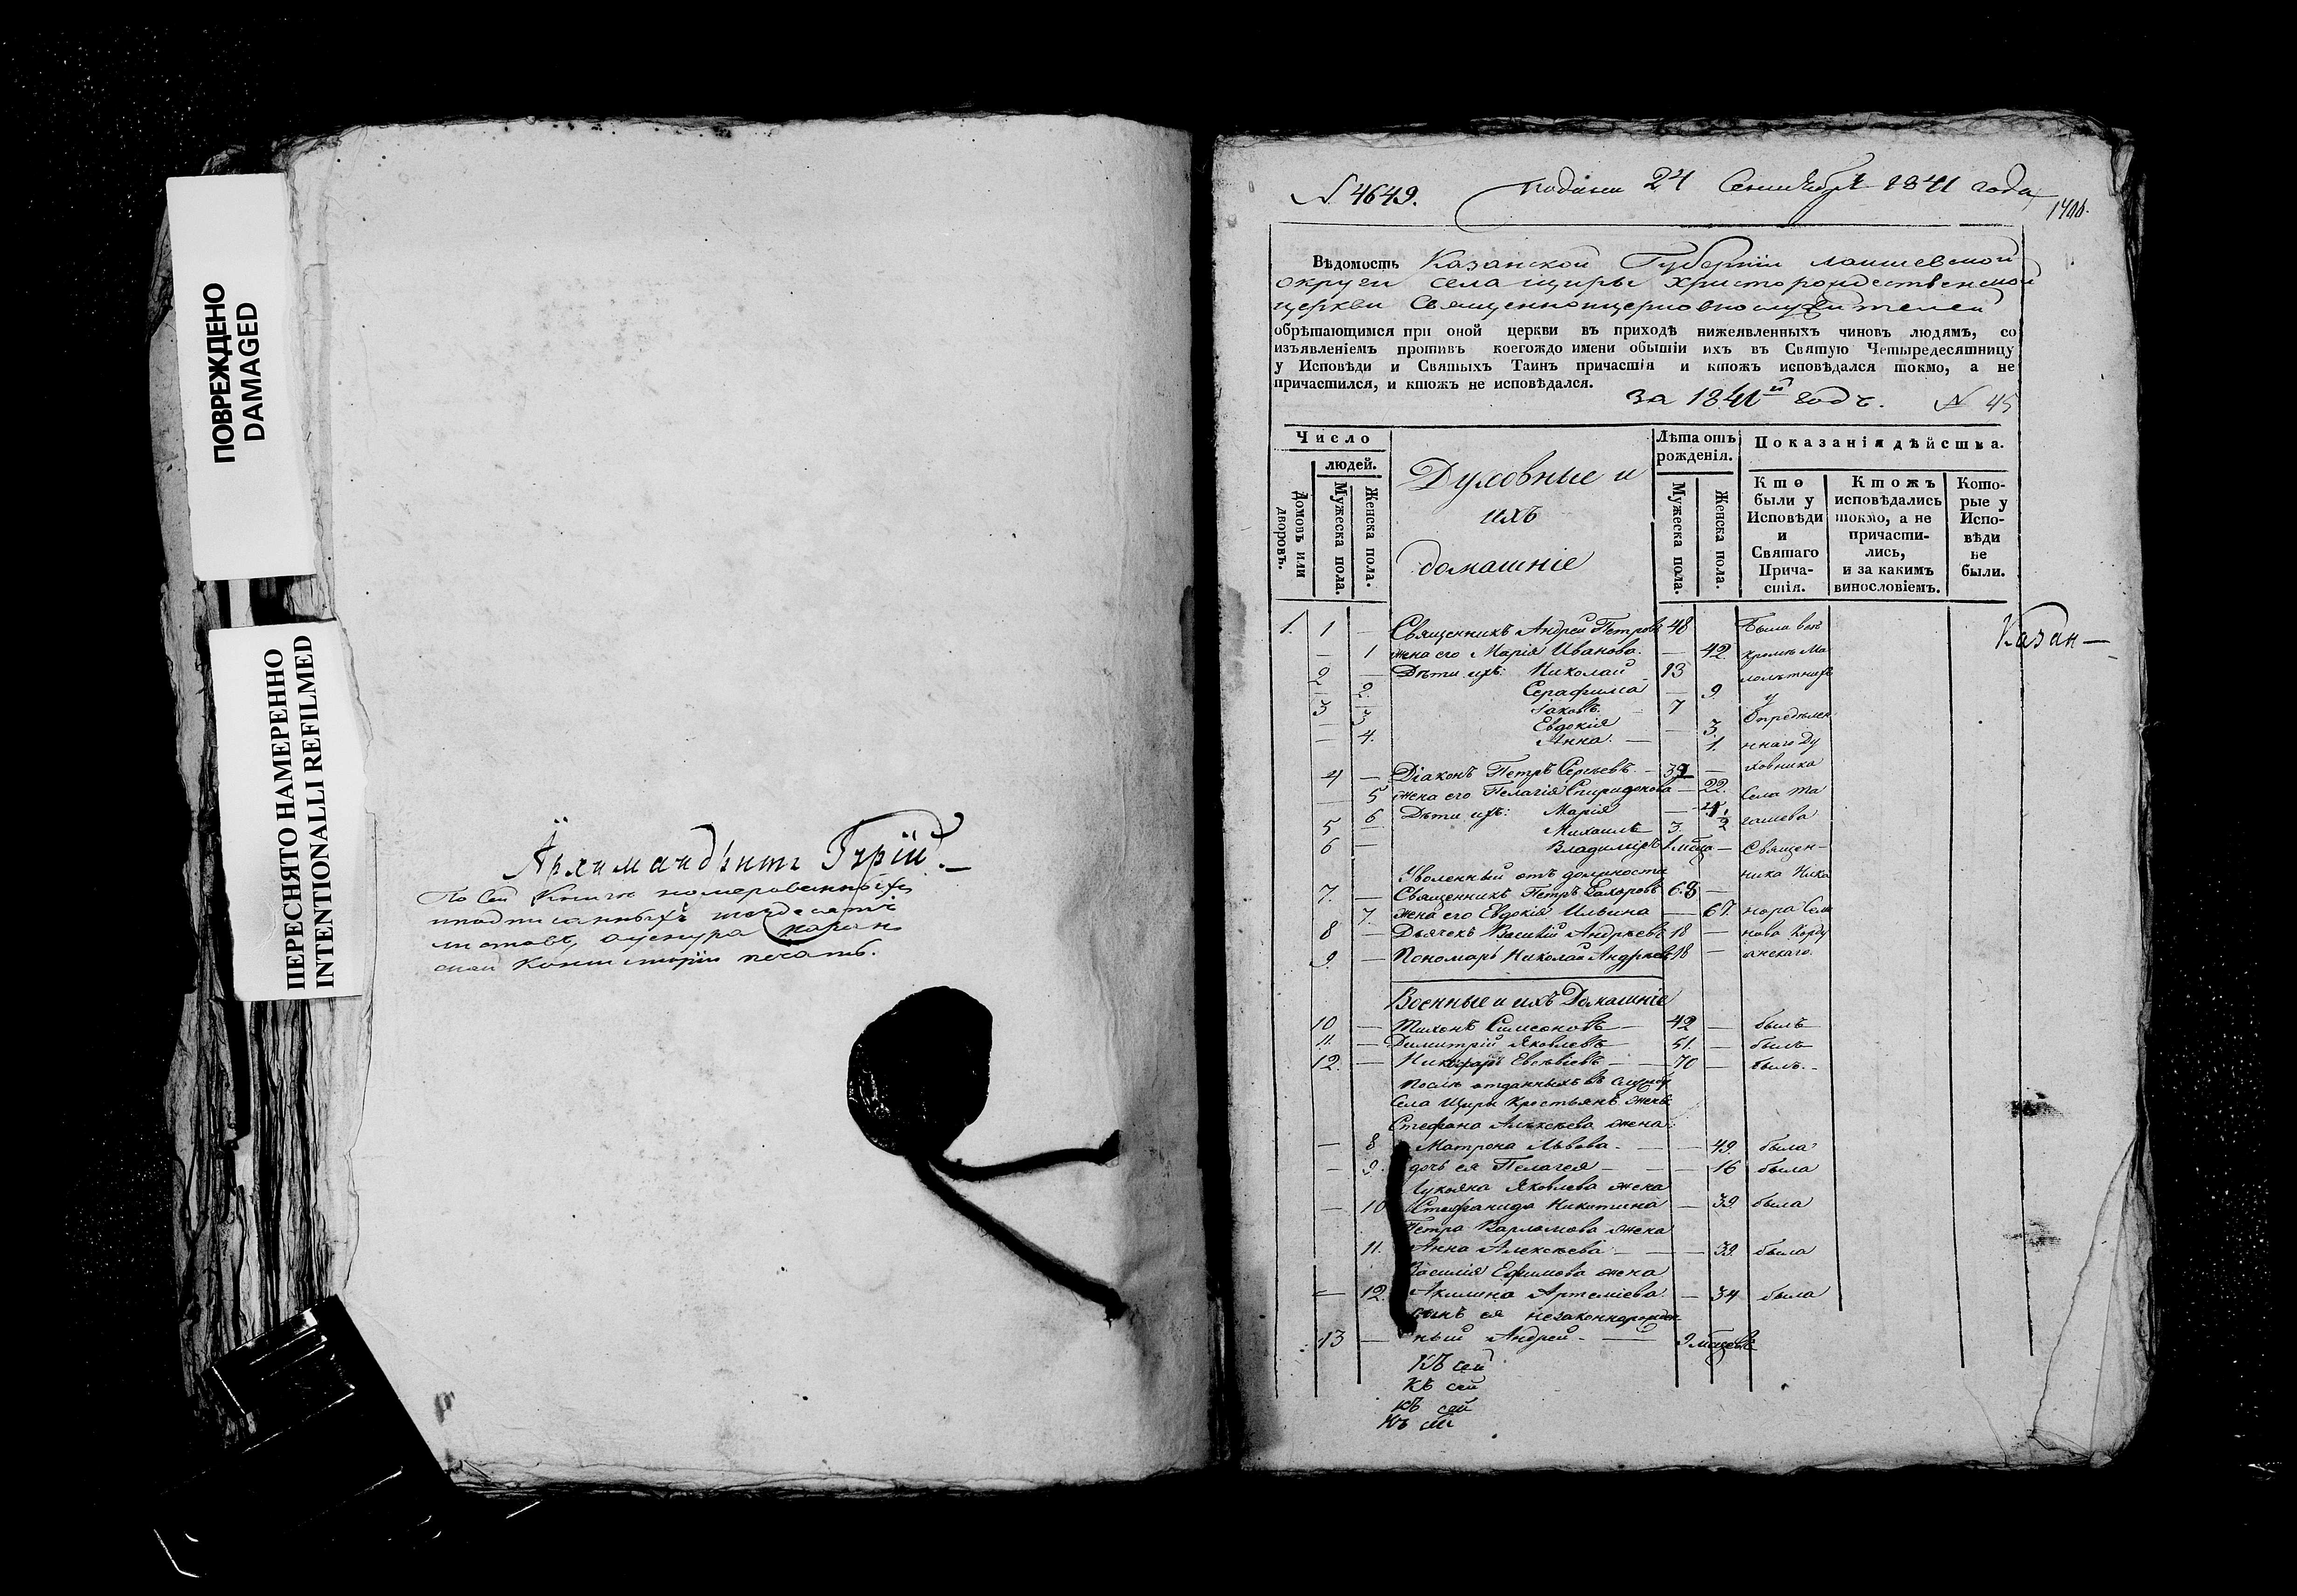 ПОВРЕЖДЕНО
DAMAGED
ПЕРЕСНЯТО НАМЕРЕННО
INTENTIONALLI REFILMED
Архимандритъ Гурій.
По сей Книгѣ номерованныхъ
листовъ,
сей Консисторіи печать.
N. 4649. подана 24 Сентября 1841 года
Вѣдомость Казанской Губерніи Лаишевской
округи села Щиры Христорождественской
церкви Священноицерковнослужителей
обрѣтающимся при оной церкви въ приходѣ нижеявленныхъ чиновъ людямъ, со
изъявленіемъ противъ коегождо имени обытіи ихъ въ Святую Четыредесятницу
у Исповѣди и Святыхъ Таинъ причастія и ктожъ исповѣдался токмо, а не
причастился, и ктожъ не исповѣдался.
за 1841й годъ. № 45
Число
людей.
Домовъ или дворовъ.
Мужеска пола.
Женска пола.
Духовные и
ихъ
домашніе
Лѣта отъ рожденія.
Мужеска пола.
Женска пола.
Показанія дѣйства.
Кто были у Исповѣди и Святаго Причастія.
Ктожъ исповѣдались токмо, а не причастились, и за какимъ винословіемъ.
Которые у Исповѣди не были.
Казан—
1. 1 — Священникъ Андрей Петровъ 48 Были всѣ
— 1 жена его Марія Иванова. — 42. кромѣ Ма
2 — Дѣти ихъ: Николай 13 лолѣтнихъ
— 2. Серафима — 9 у
3 Іаковъ. 7
— 3 Евдокія — 3. Опредѣлен
— 4. Анна. — 1. ннаго Ду
4 — Діаконъ Петръ Сергѣевъ — — ховника
— 5 жена его Пелагія Спиридонова — 22. Села Та
6 Дѣти ихъ: Марія — гашева
5 — Михаилъ 3.
6 — Владиміръ 1 мѣсца — Священ-
Уволенный отъ должности ника Ника
7. — Священникъ Петръ Захаровъ 68 —
7. жена его Евдокія Ильина — 67. нора Семе
8 — Дьячекъ Василій Андреевъ 18 — нова Корду
9. — Пономарь Николай Андреевъ 18 — анскаго.
Военные и ихъ Домашніе
10 — Тихонъ Симеоновъ — 42 — былъ
11 — Димитрій Яковлевъ — 51. — былъ
12. — Никифоръ Евсѣвіевъ — 70 — былъ.
Послѣ отданныхъ въ службу
Села Щиры Крестьянъ жены
Стефана Алексѣева жена:
— 8 Матрона Львова. — — 49. была
— 9. дочь ея Пелагея — — 16 была
Лукояна Яковлева жена
— 10 Стефанида Никитина — 39. была
Петра Варламова жена
11. Анна Алексѣева — — 39. была
Василія Ефимова жена
— 12. Акилина Артеміева — 34 была
сынъ ея незаконнорожден
13 — ный Андрей — 9 мѣсцевъ
Къ сей
Къ сей
Къ сей
Къ сей